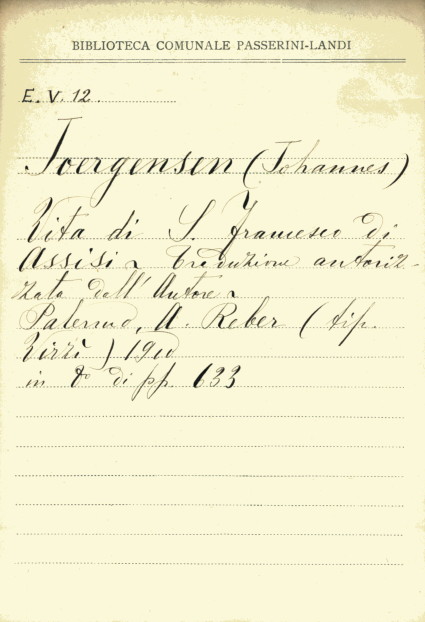 BIBLIOTECA COMUNALE PASSERINI-LANDI
E. V. 12.
Joergensen (Johannes)
Vita di S. Francesco di
Assisi ~ Traduzione autoriz-
zata dall' Autore ~
Palermo, A. Reber (tip.
Virzì) 1910
in 8º di pp. 633